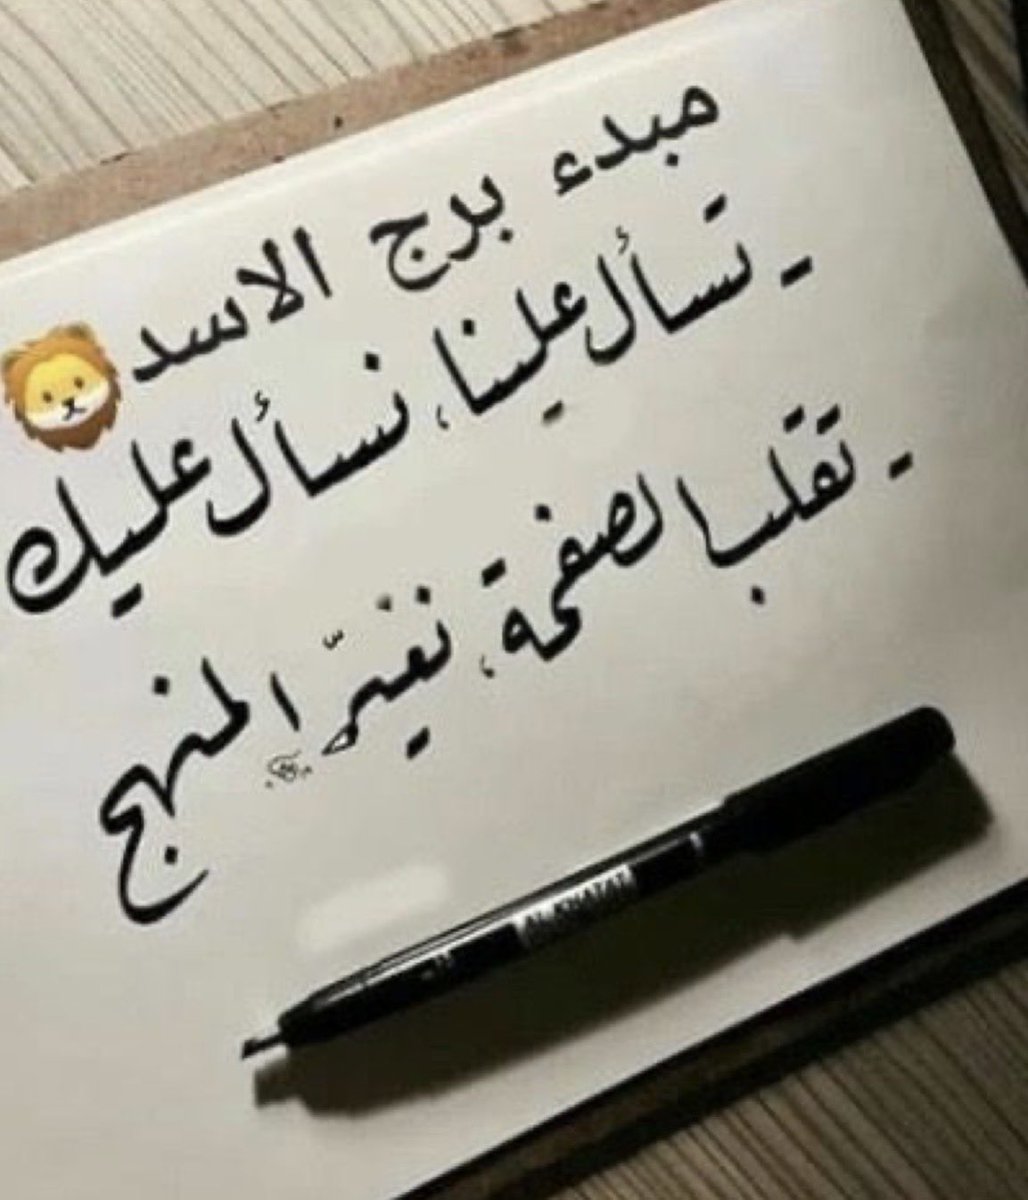 مبدء برج الاسد🦁
- تسأل علينا، نسأل عليك
- تقلب الصفحة، نغيّر المنهج
AL-KHATAT